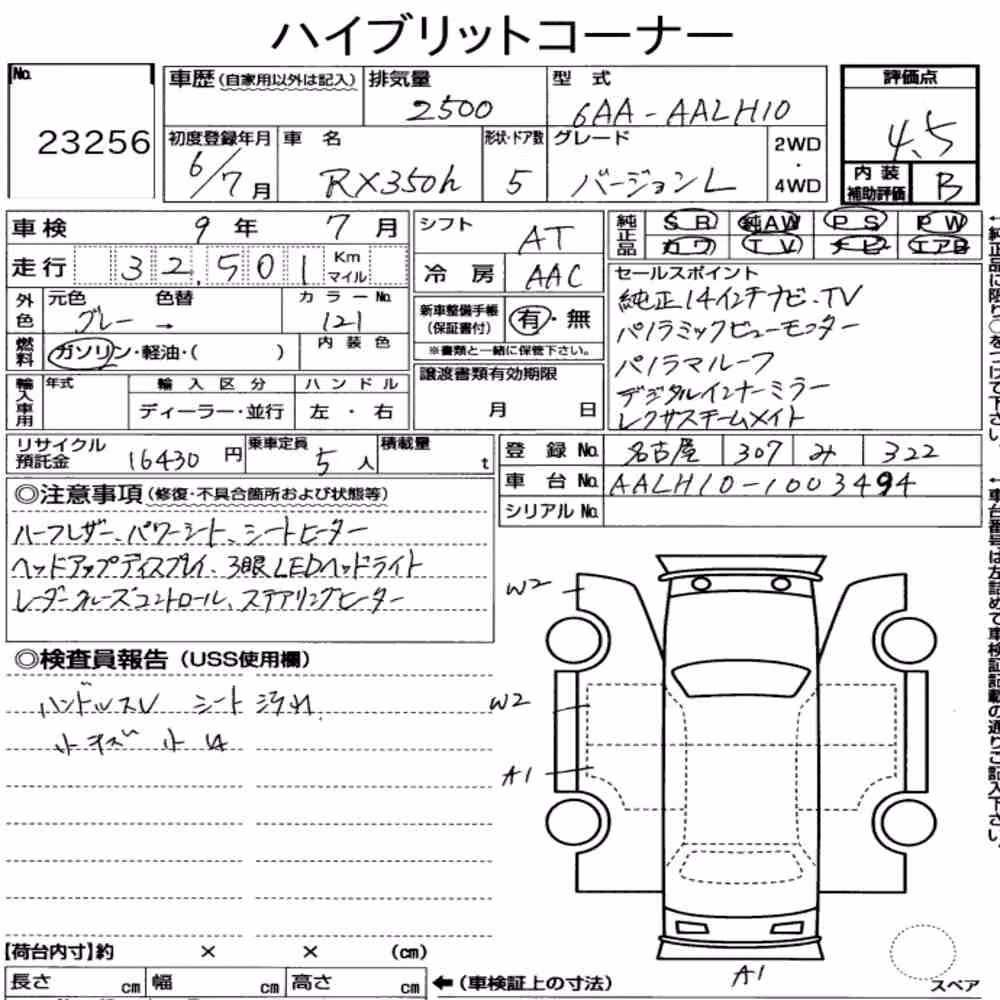 ハイブリットコーナー
No.
23256
車歴(自家用以外は記入)
排気量
2500
型式
6AA-AALH10
評価点
4.5
初度登録年月
6/7月
車名
RX350h
形状・ドア数
5
グレード
バージョンL
2WD
・
4WD
内装
補助評価
B
車検 9年 7月
走行 32,501 Km
マイル
外色
元色 グレー
色替 →
カラーNo. 121
燃料
ガソリン・軽油・( )
内装色
輸入車用
年式
輸入区分
ディーラー・並行
ハンドル
左・右
シフト AT
冷房 AAC
新車整備手帳
(保証書付)
有・無
※書類と一緒に保管下さい。
譲渡書類有効期限
月 日
純正品
SR 純AW PS PW
カワ TV ナビ エアB
セールスポイント
純正14インチナビ・TV
パノラミックビューモニター
パノラマルーフ
デジタルインナーミラー
レクサスチームメイト
←純正品に限り○をつけて下さい。
リサイクル
預託金
16430円
乗車定員
5人
積載量
t
登録No. 名古屋 307 み 322
車台No. AALH10-1003494
シリアルNo.
←車台番号は左詰めで車検証記載の通りご記入下さい。
◎注意事項(修復・不具合箇所および状態等)
ハーフレザー、パワーシート、シートヒーター
ヘッドアップディスプレイ、3眼LEDヘッドライト
レーダークルーズコントロール、ステアリングヒーター
◎検査員報告(USS使用欄)
ハンドルスレ シート汚れ
小キズ 小凹
W2
W2
A1
A1
【荷台内寸】約 × × (cm)
長さ cm 幅 cm 高さ cm ←(車検証上の寸法)
スペア